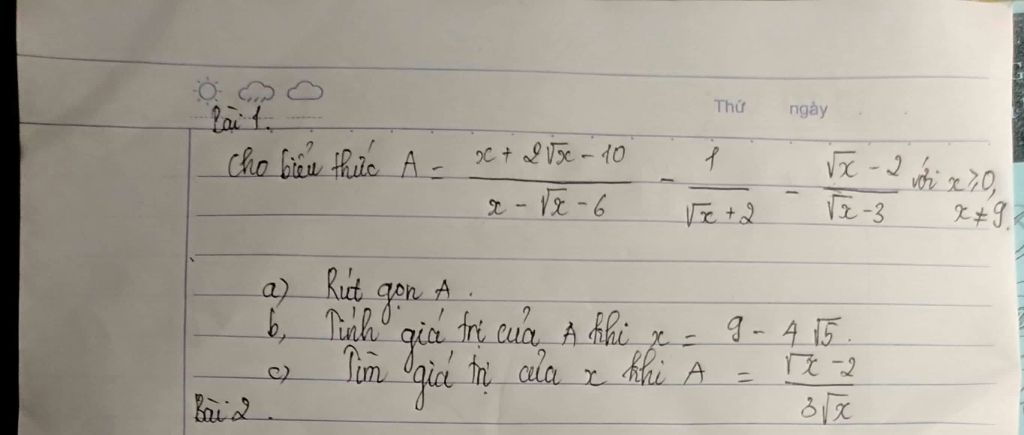 Thứ ngày
Bài 1.
Cho biểu thức A = \frac{x + 2\sqrt{x} - 10}{x - \sqrt{x} - 6} - \frac{1}{\sqrt{x} + 2} - \frac{\sqrt{x} - 2}{\sqrt{x} - 3} với x ⩾ 0, x ≠ 9.
a) Rút gọn A.
b, Tính giá trị của A khi x = 9 - 4\sqrt{5}.
c) Tìm giá trị của x khi A = \frac{\sqrt{x} - 2}{3\sqrt{x}}
Bài 2.